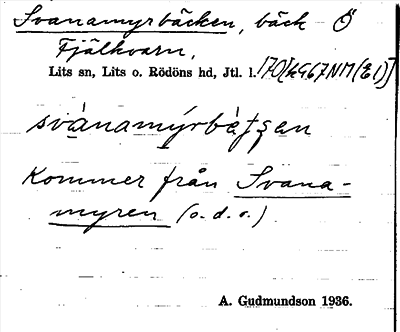 Svanamyrbäcken, bäck Ö
Fjälkvarn,
Lits sn, Lits o. Rödöns hd, Jtl. l.
svànamýrbèt̬ʂen
Kommer från Svana-
myren (o.d.o.).
A. Gudmundson 1936.